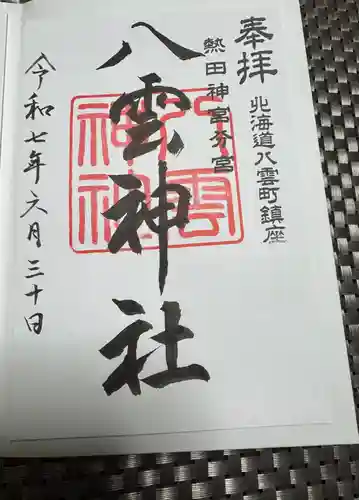 奉拝
北海道八雲町鎮座
熱田神宮分宮
八雲神社
八雲神社
令和七年六月三十日